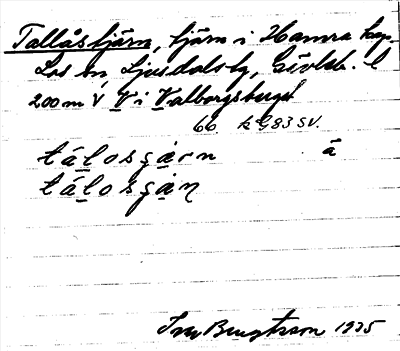 Tallåstjärn, tjärn i Hamra kap.
Los sn, Ljusdals tg, Gävleb. l
200 m V V i Valborgsberget
66. k G83 SV.
tál̲osɡa̲rn á
tál̲osɡa̲ɳ
Bengtsson 1935